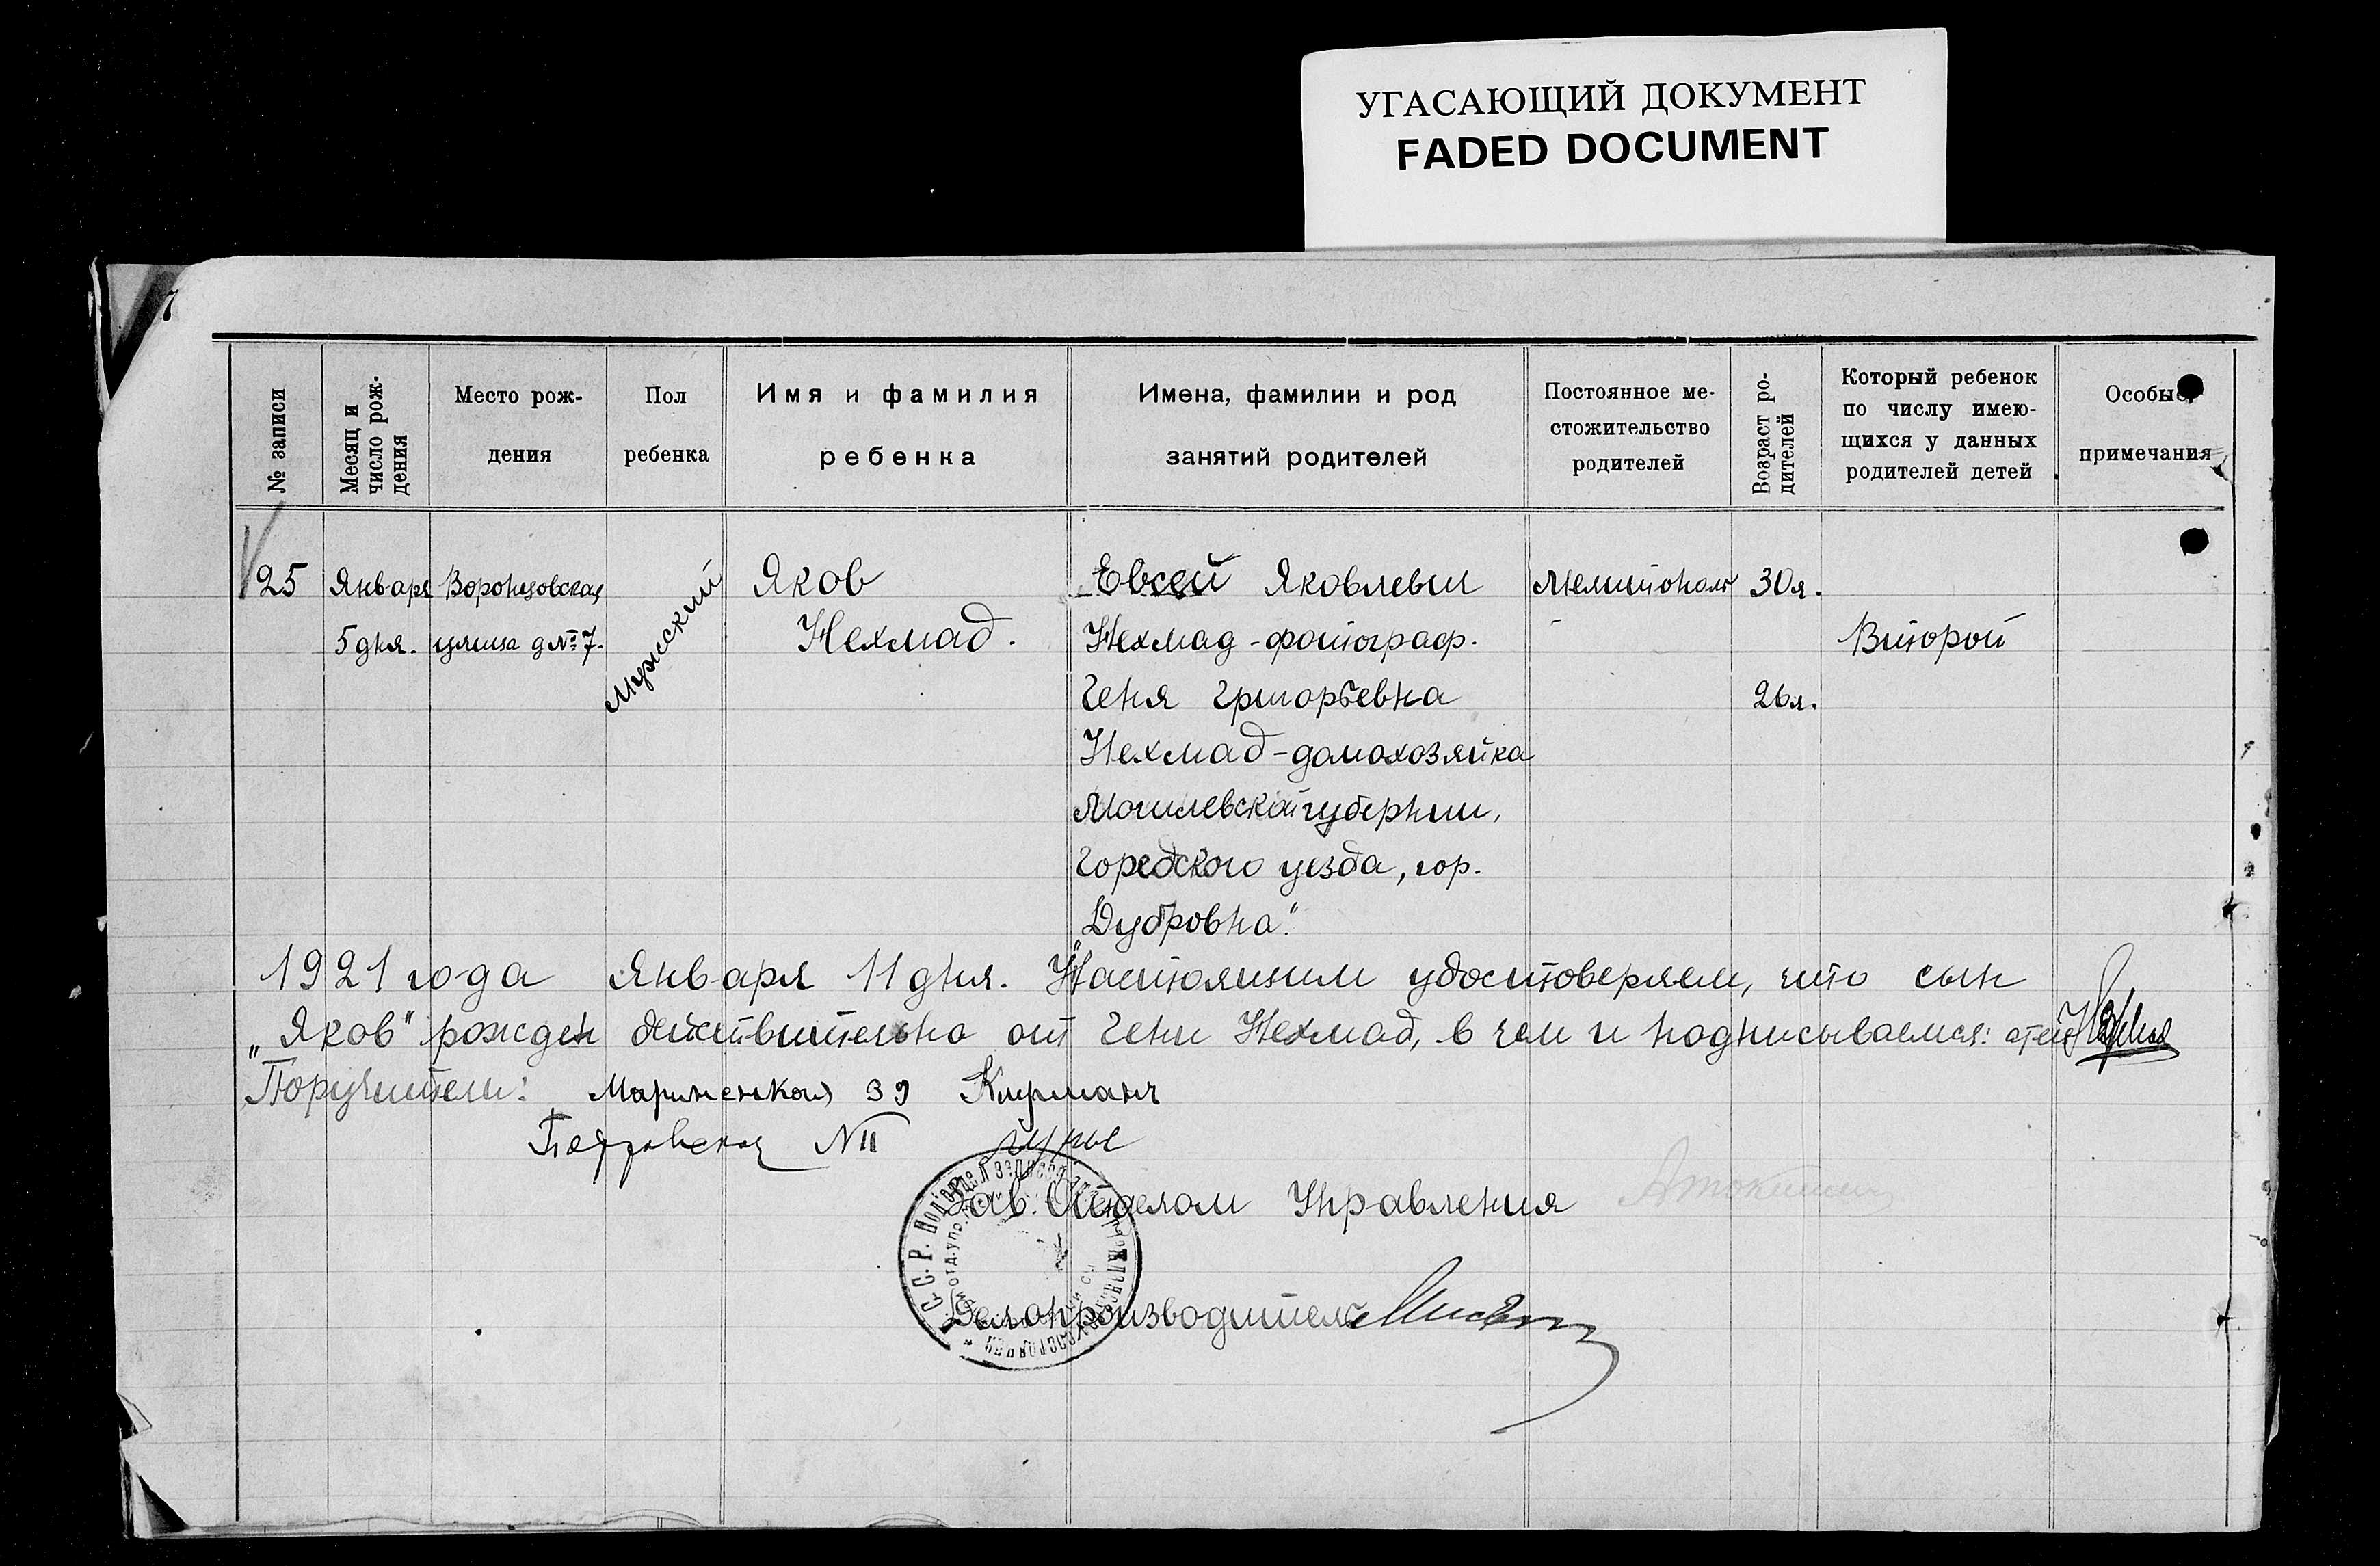 УГАСАЮЩИЙ ДОКУМЕНТ
FADED DOCUMENT
7
№ записи
Месяц и
число рож-
дения
Место рож-
дения
Пол
ребенка
Имя и фамилия
ребенка
Имена, фамилии и род
занятий родителей
Постоянное ме-
стожительство
родителей
Возраст ро-
дителей
Который ребенок
по числу имею-
щихся у данных
родителей детей
Особые
примечания
25
Января
5 дня.
Воронцовская
улица д № 7.
Мужской
Яков
Нехмад.
Евсей Яковлевич
Нехмад - фотограф.
Геня Григорьевна
Нехмад - домохозяйка
Могилевской губернии,
Горецкого уезда, гор.
Дубровна."
Мелитополь
30 л.
26 л.
Второй
1921 года Января 11 дня. "Настоящим удостоверяем, что сын
„Яков" рожден действительно от Гени Нехмад, в чем и подписываемся: отец
Поручители: 39
№ 11
Зав. Отделом Управления
Делопроизводитель